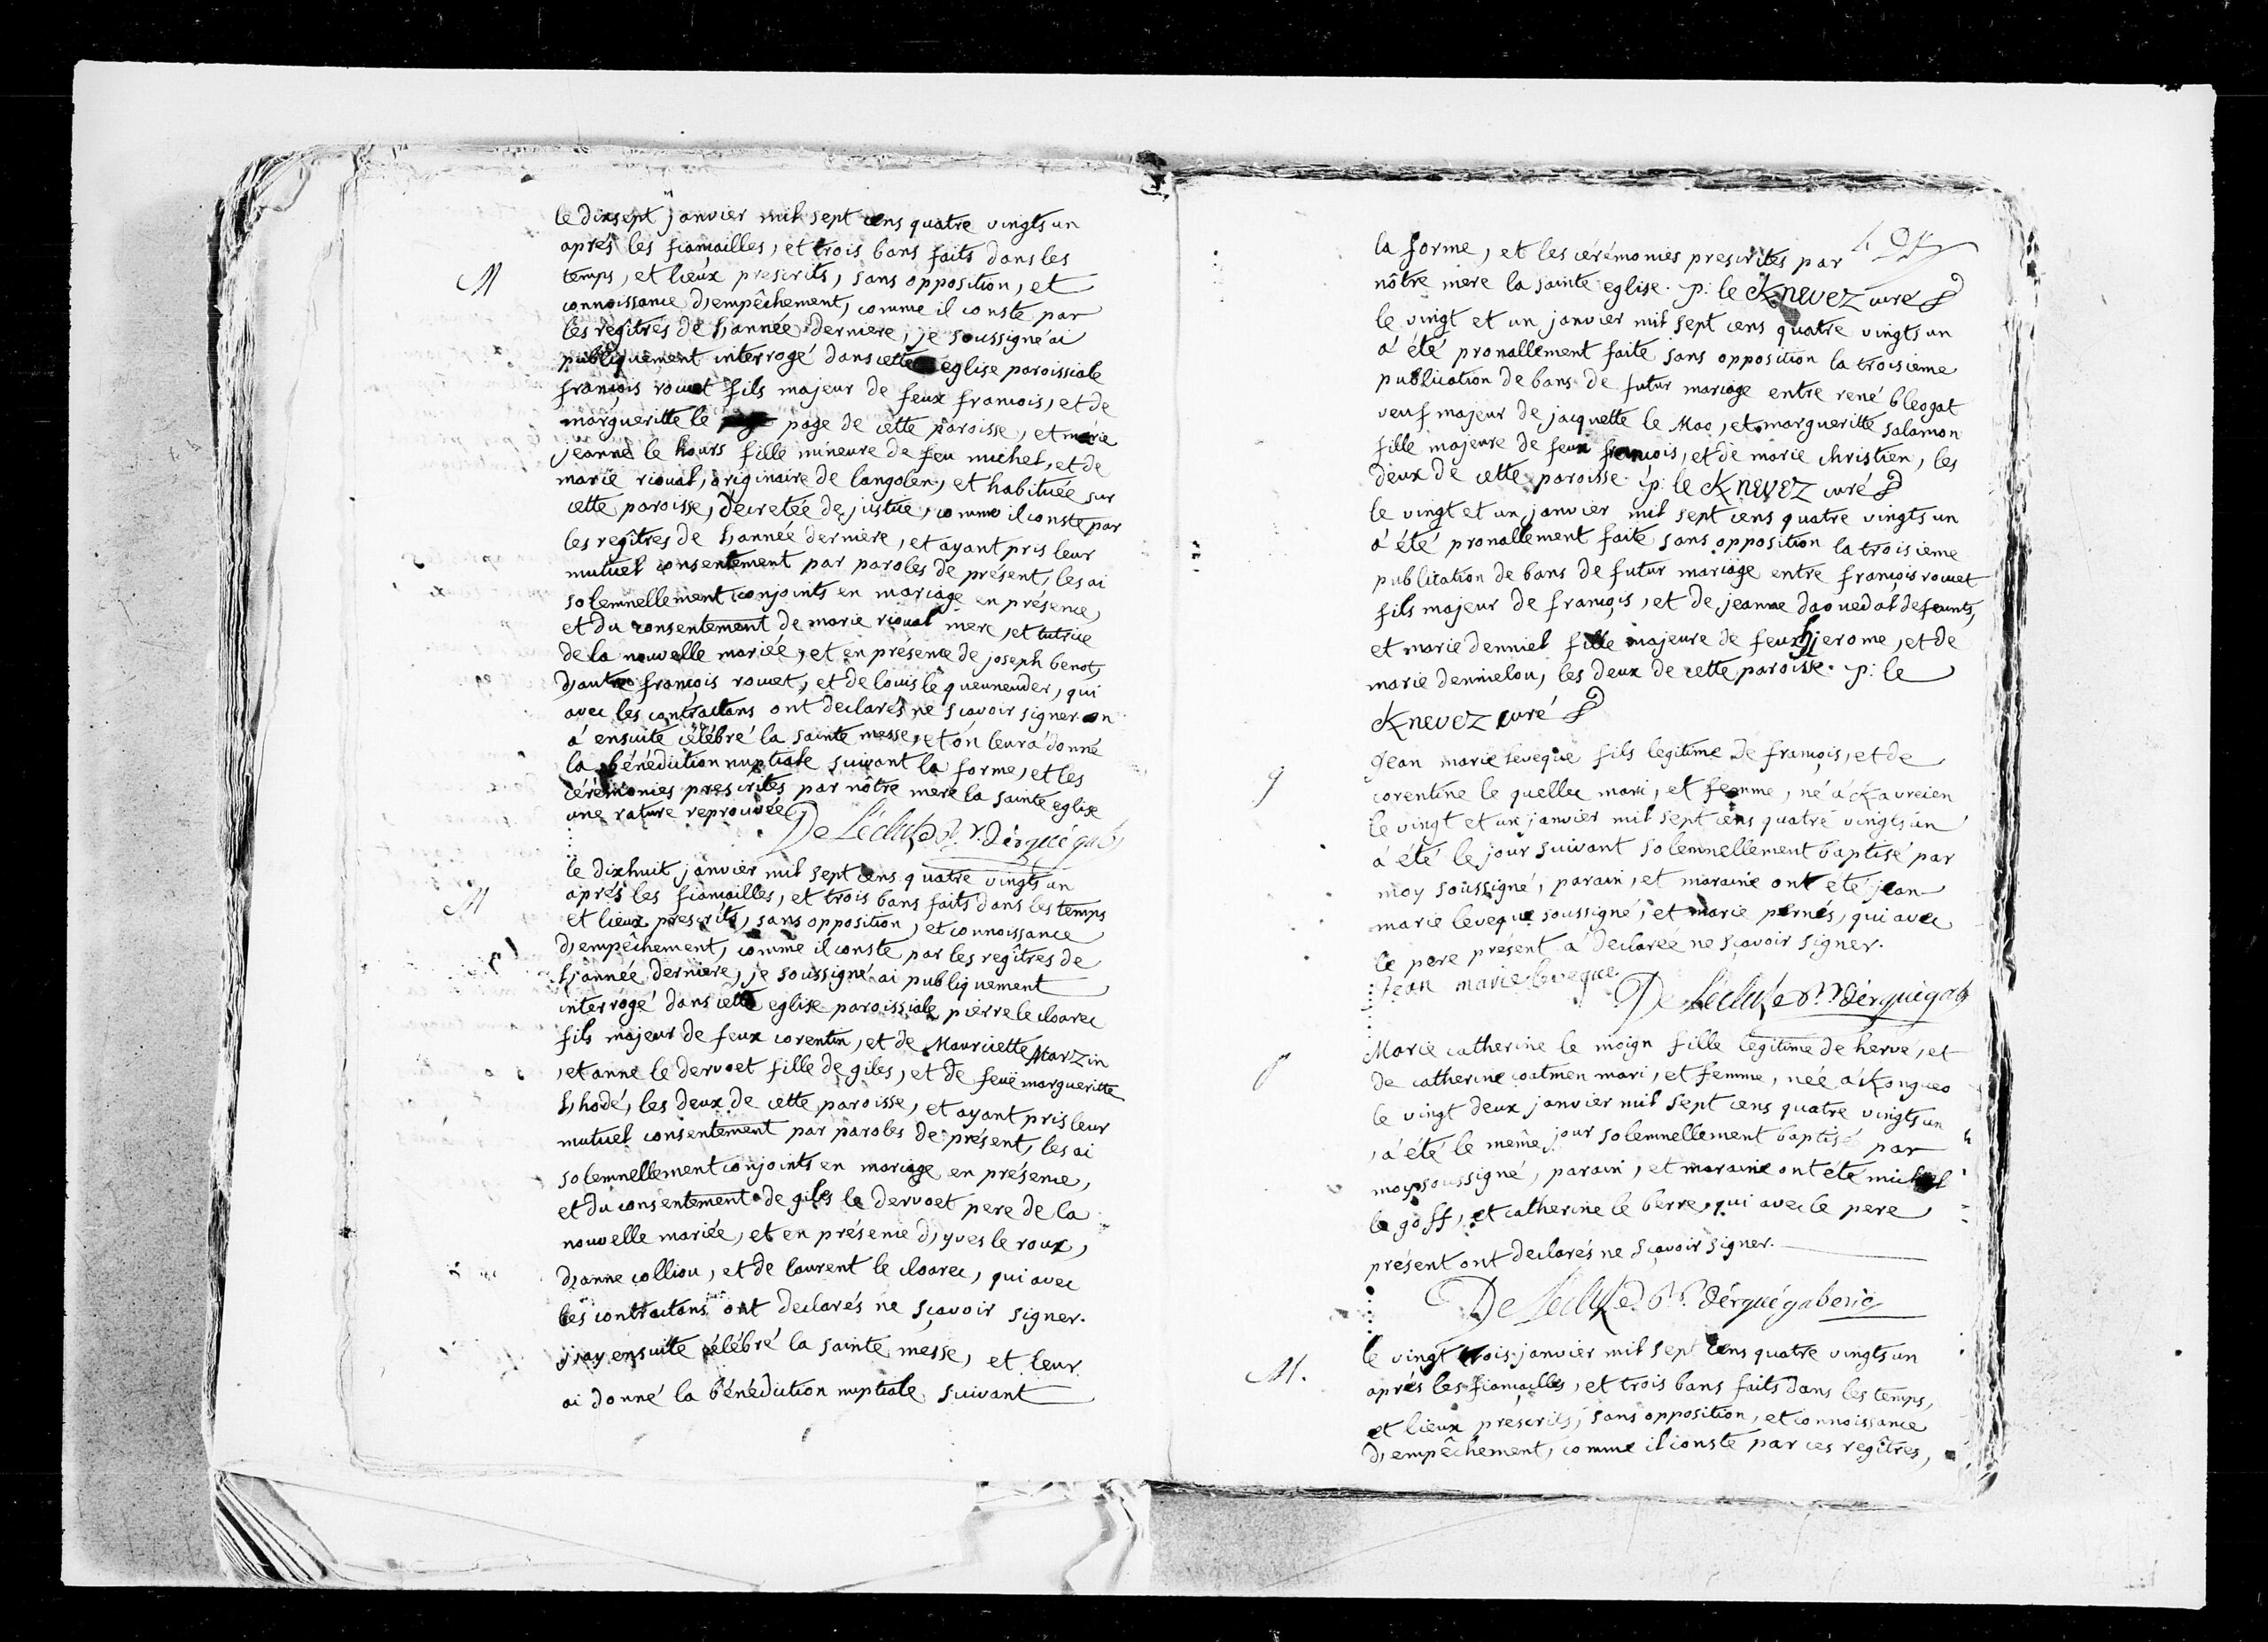 le dixsept janvier mil sept cens quatre vingts un
aprés les fiancailles, et trois bans faits dans les
M
temps, et lieux prescrits, sans opposition, et
connoissance d'empêchement, comme il conste par
les regîtres de l'année derniere, je soussigné ai
publiquement interrogé dans cette eglise paroissiale
françois rouet fils majeur de feux francois, et de
margueritte le page de cette paroisse, et marie
jeanne le hours fille mineure de feu michel, et de
marie rioual, originaire de langolen, et habituée sur
cette paroisse, decretée de justice, comme il conste par
les regîtres de l'année derniere, et ayant pris leur
mutuel consentement par paroles de présent, les ai
solemnellement conjoints en mariage en présence,
et du consentement de marie rioual mere, et tutrice
de la nouvelle mariée, et en présence de joseph benot,
d'autre françois rouet, et de louis le queuneuder, qui
avec les contractans ont declarés ne scavoir signer on
a ensuite célébré la sainte messe, et on leur a donné
la bénédiction nuptiale suivant la forme, et les
cérémonies prescrites par nôtre mere la sainte eglise
une rature reprouvée
De Lécluse Rr. d'érguégab
le dixhuit janvier mil sept cens quatre vingts un
M
aprés les fiancailles, et trois bans faits dans les temps
et lieux prescrits, sans opposition, et connoissance
d'empêchement, comme il conste par les regîtres de
l'année derniere, je soussigné ai publiquement
interrogé dans cette eglise paroissiale pierre le cloarec
fils majeur de feux corentin, et de Mauricette Marzin
, et anne le dervoet fille de giles, et de feuë margueritte
l'hodé, les deux de cette paroisse, et ayant pris leur
mutuel consentement par paroles de présent, les ai
solemnellement conjoints en mariage en présence,
et du consentement de giles le dervoet pere de la
nouvelle mariée, et en présence d'yves le roux,
d'anne colliou, et de laurent le cloarec, qui avec
les contractans ont declarés ne sçavoir signer.
j'ay ensuite célébré la sainte messe, et leur
ai donné la bénédiction nuptiale suivant
la forme, et les cérémonies prescrites par
nôtre mere la sainte eglise. p: le Knevez curé
le vingt et un janvier mil sept cens quatre vingts un
a été pronallement faite sans opposition la troisieme
publication de bans de futur mariage entre rené bleogat
veuf majeur de jacquette le Mao, et margueritte salamon
fille majeure de feux francois, et de marie christien, les
deux de cette paroisse. p: le Knevez curé
le vingt et un janvier mil sept cens quatre vingts un
a été pronallement faite sans opposition la troisieme
publication de bans de futur mariage entre françois rouet
fils majeur de françois, et de jeanne daouedal defeunts,
et marie denniel fille majeure de feux hjerome, et de
marie dennielou, les deux de cette paroisse. p: le
Knevez curé
Jean marie leveque fils legitime de françois, et de
corentine le quellec mari, et femme, né a Kavreien
le vingt et un janvier mil sept cens quatre vingts un
a été le jour suivant solemnellement baptisé par
moy soussigné, parain, et maraine ont été jean
marie leveque soussigné, et marie pernés, qui avec
le pere présent a declarée ne sçavoir signer.
Jean marie leveque
De Lécluse Rr. d'érguégab
Marie catherine le moign fille legitime de hervé, et
de catherine coatmen mari, et femme, née a Kongueo
le vingt deux janvier mil sept cens quatre vingts un
, a été le même jour solemnellement baptisé par
moy soussigné, parain, et maraine ont été michel
le goff, et catherine le berre, qui avec le pere
présent ont declarés ne sçavoir signer.
De Lécluse. Rr. d'érguégaberic
le vingt trois janvier mil sept cens quatre vingts un
M.
aprés les fiancailles, et trois bans faits dans les temps,
et lieux préscrits, sans opposition, et connoissance
d'empêchement, comme il conste par ces regîtres,